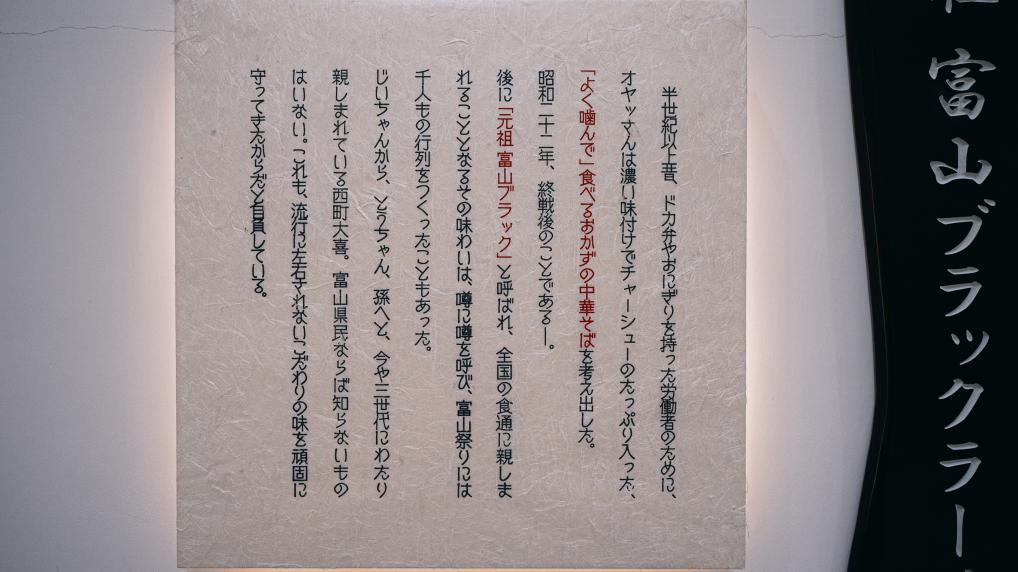 富山ブラックラー
半世紀以上昔、ドカ弁やおにぎりを持った労働者のために、
オヤッさんは濃い味付けでチャーシューのたっぷり入った、
「よく噛んで」食べるおかずの中華そばを考え出した。
昭和二十二年、終戦後のことである―。
後に「元祖 富山ブラック」と呼ばれ、全国の食通に親しま
れることとなるその味わいは、噂に噂を呼び、富山祭りには
千人もの行列をつくったこともあった。
じいちゃんから、とうちゃん、孫へと、今や三世代にわたり
親しまれている西町大喜。富山県民ならば知らないもの
はいない。これも、流行に左右されないこだわりの味を頑固に
守ってきたからだと自負している。